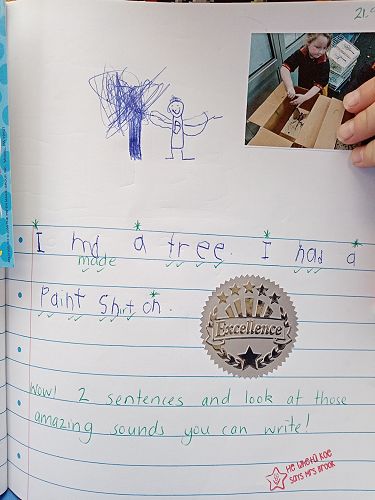 21.
I md a tree. I had a
made
Paint Shirt on.
Excellence
Wow! 2 sentences and look at those
amazing sounds you can write!
He whetū koe
says Mrs Brook